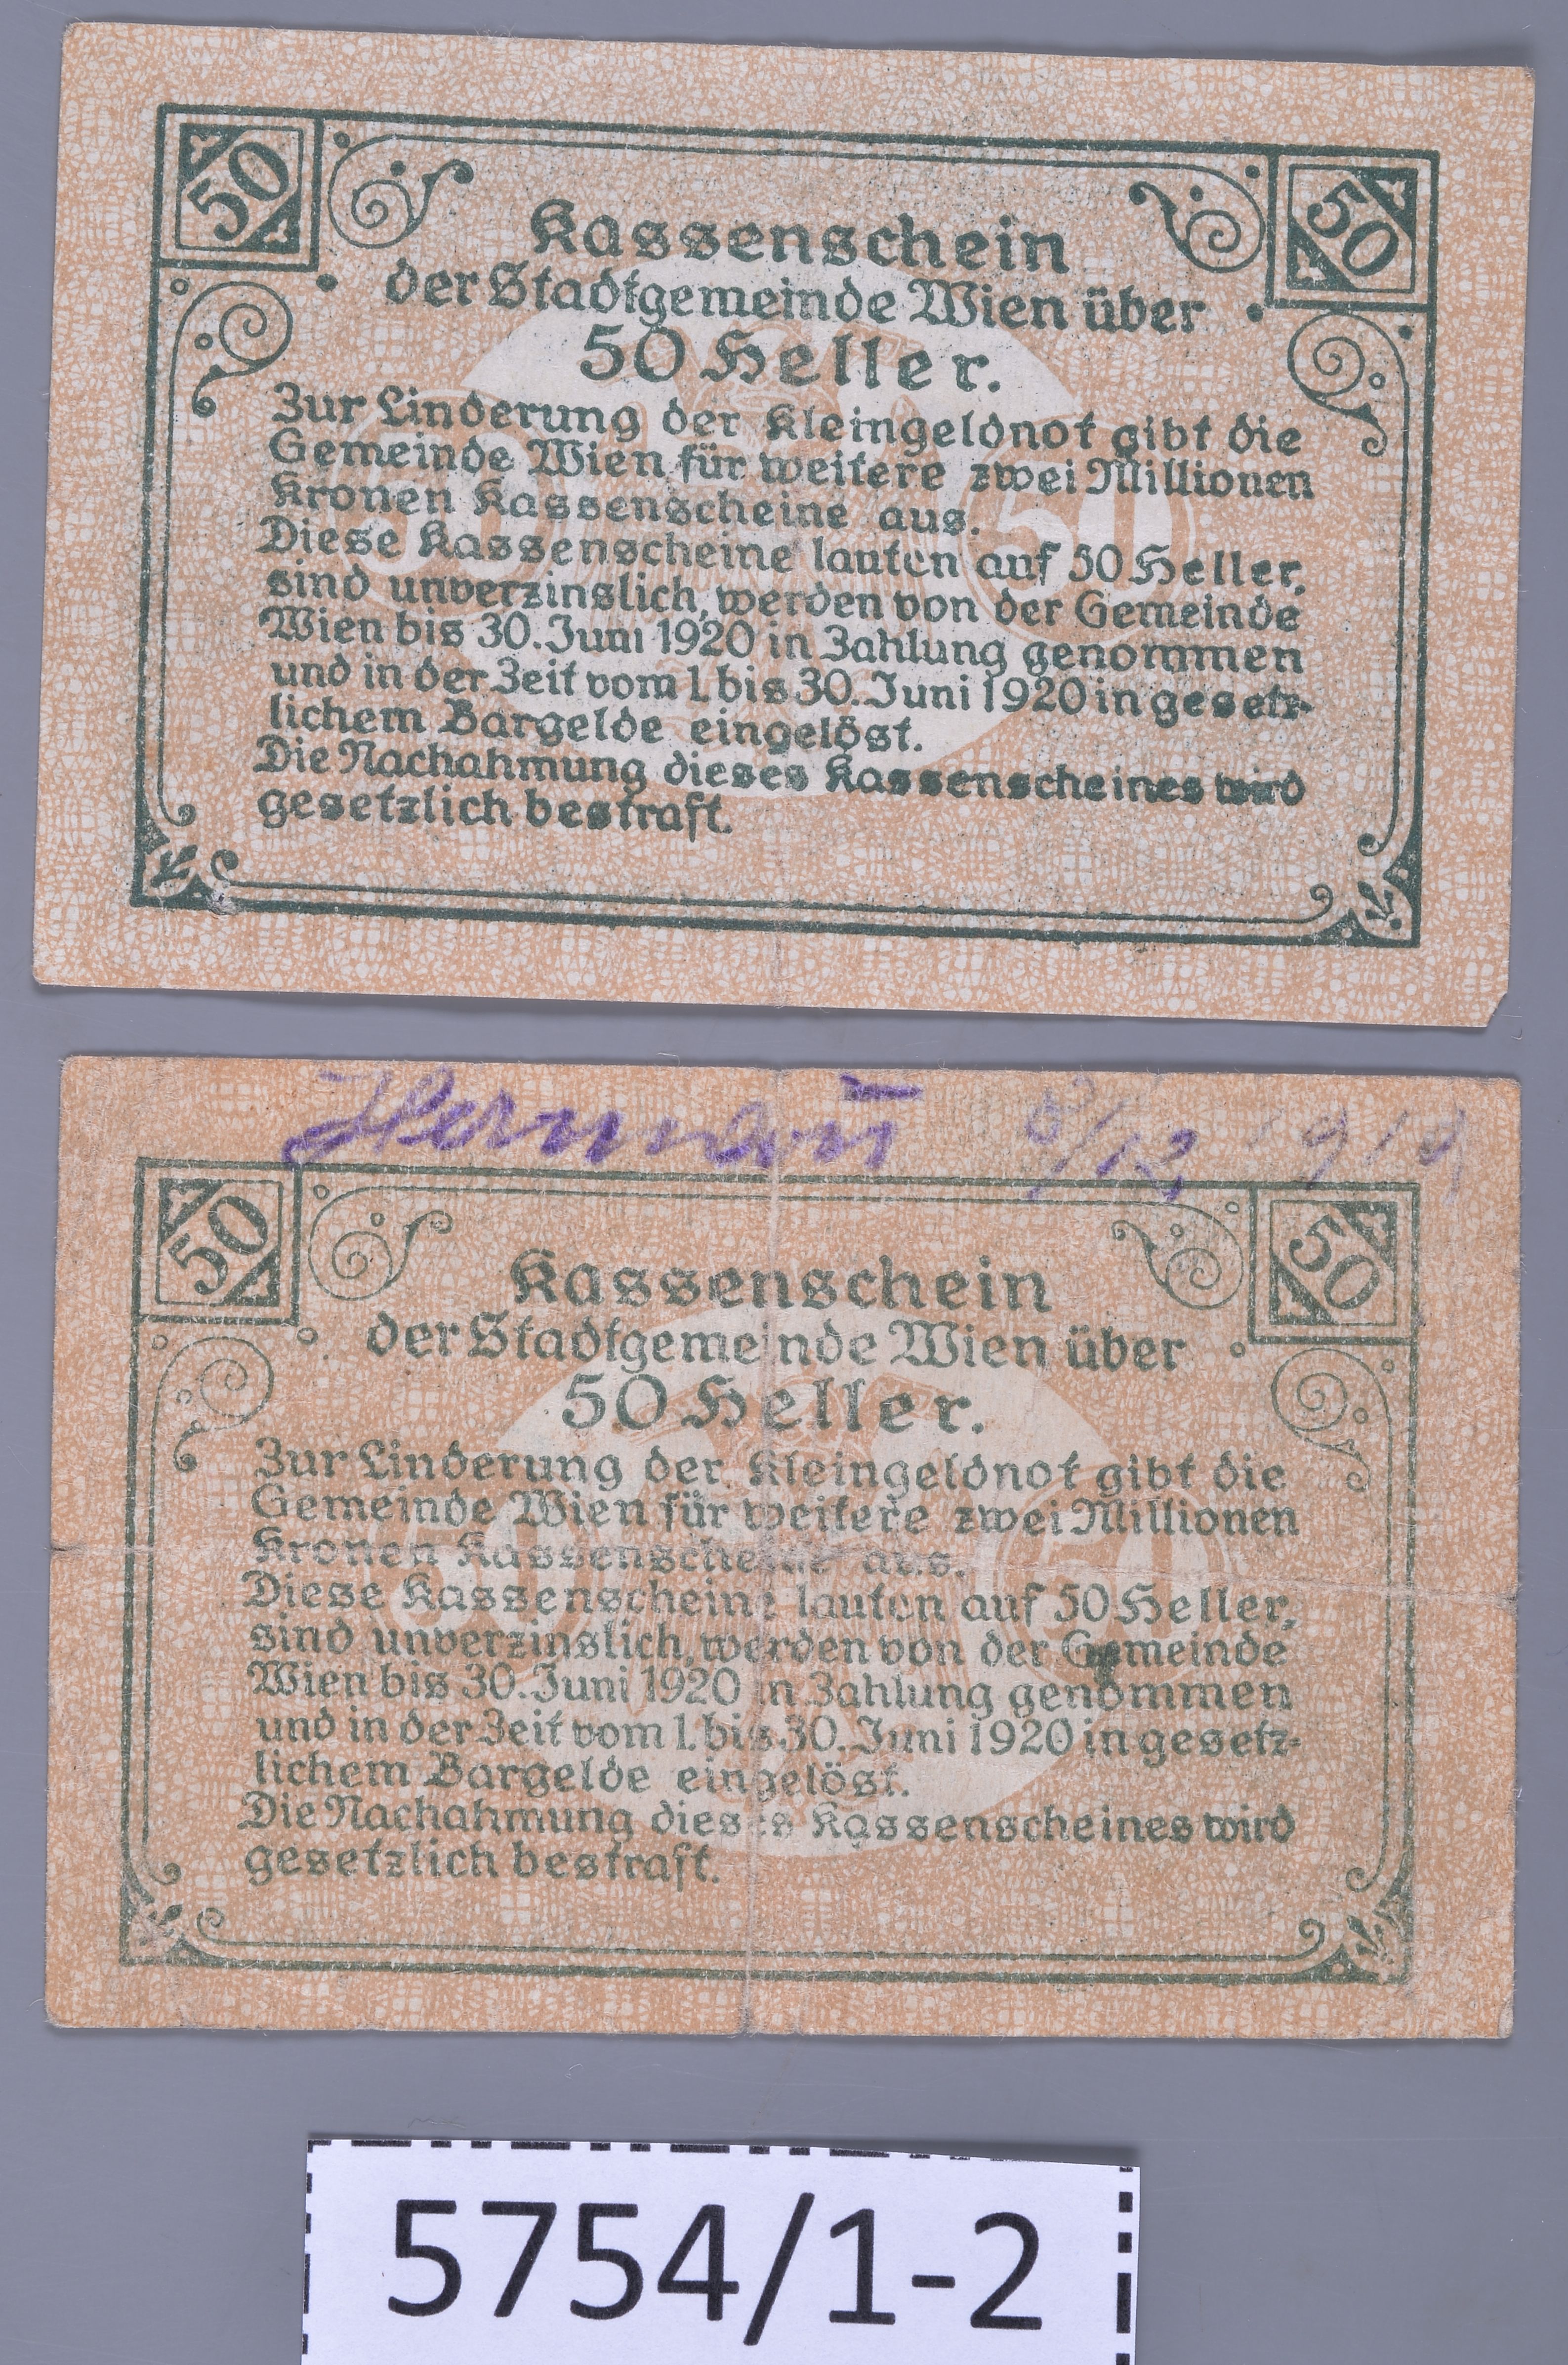 50
50
Kassenschein
der Stadtgemeinde Wien über
50 Heller.
Zur Linderung der Kleingeldnot gibt die
Gemeinde Wien für weitere zwei Millionen
Kronen Kassenscheine aus.
Diese Kassenscheine lauten auf 50 Heller,
sind unverzinslich, werden von der Gemeinde
Wien bis 30. Juni 1920 in Zahlung genommen
und in der Zeit vom 1. bis 30. Juni 1920 in gesetz-
lichem Bargelde eingelöst.
Die Nachahmung dieses Kassenscheines wird
gesetzlich bestraft.
50
50
8/12 1919
50
50
Kassenschein
der Stadtgemeinde Wien über
50 Heller.
Zur Linderung der Kleingeldnot gibt die
Gemeinde Wien für weitere zwei Millionen
Kronen Kassenscheine aus.
Diese Kassenscheine lauten auf 50 Heller,
sind unverzinslich, werden von der Gemeinde
Wien bis 30. Juni 1920 in Zahlung genommen
und in der Zeit vom 1. bis 30. Juni 1920 in gesetz-
lichem Bargelde eingelöst.
Die Nachahmung dieses Kassenscheines wird
gesetzlich bestraft.
50
50
5754/1-2